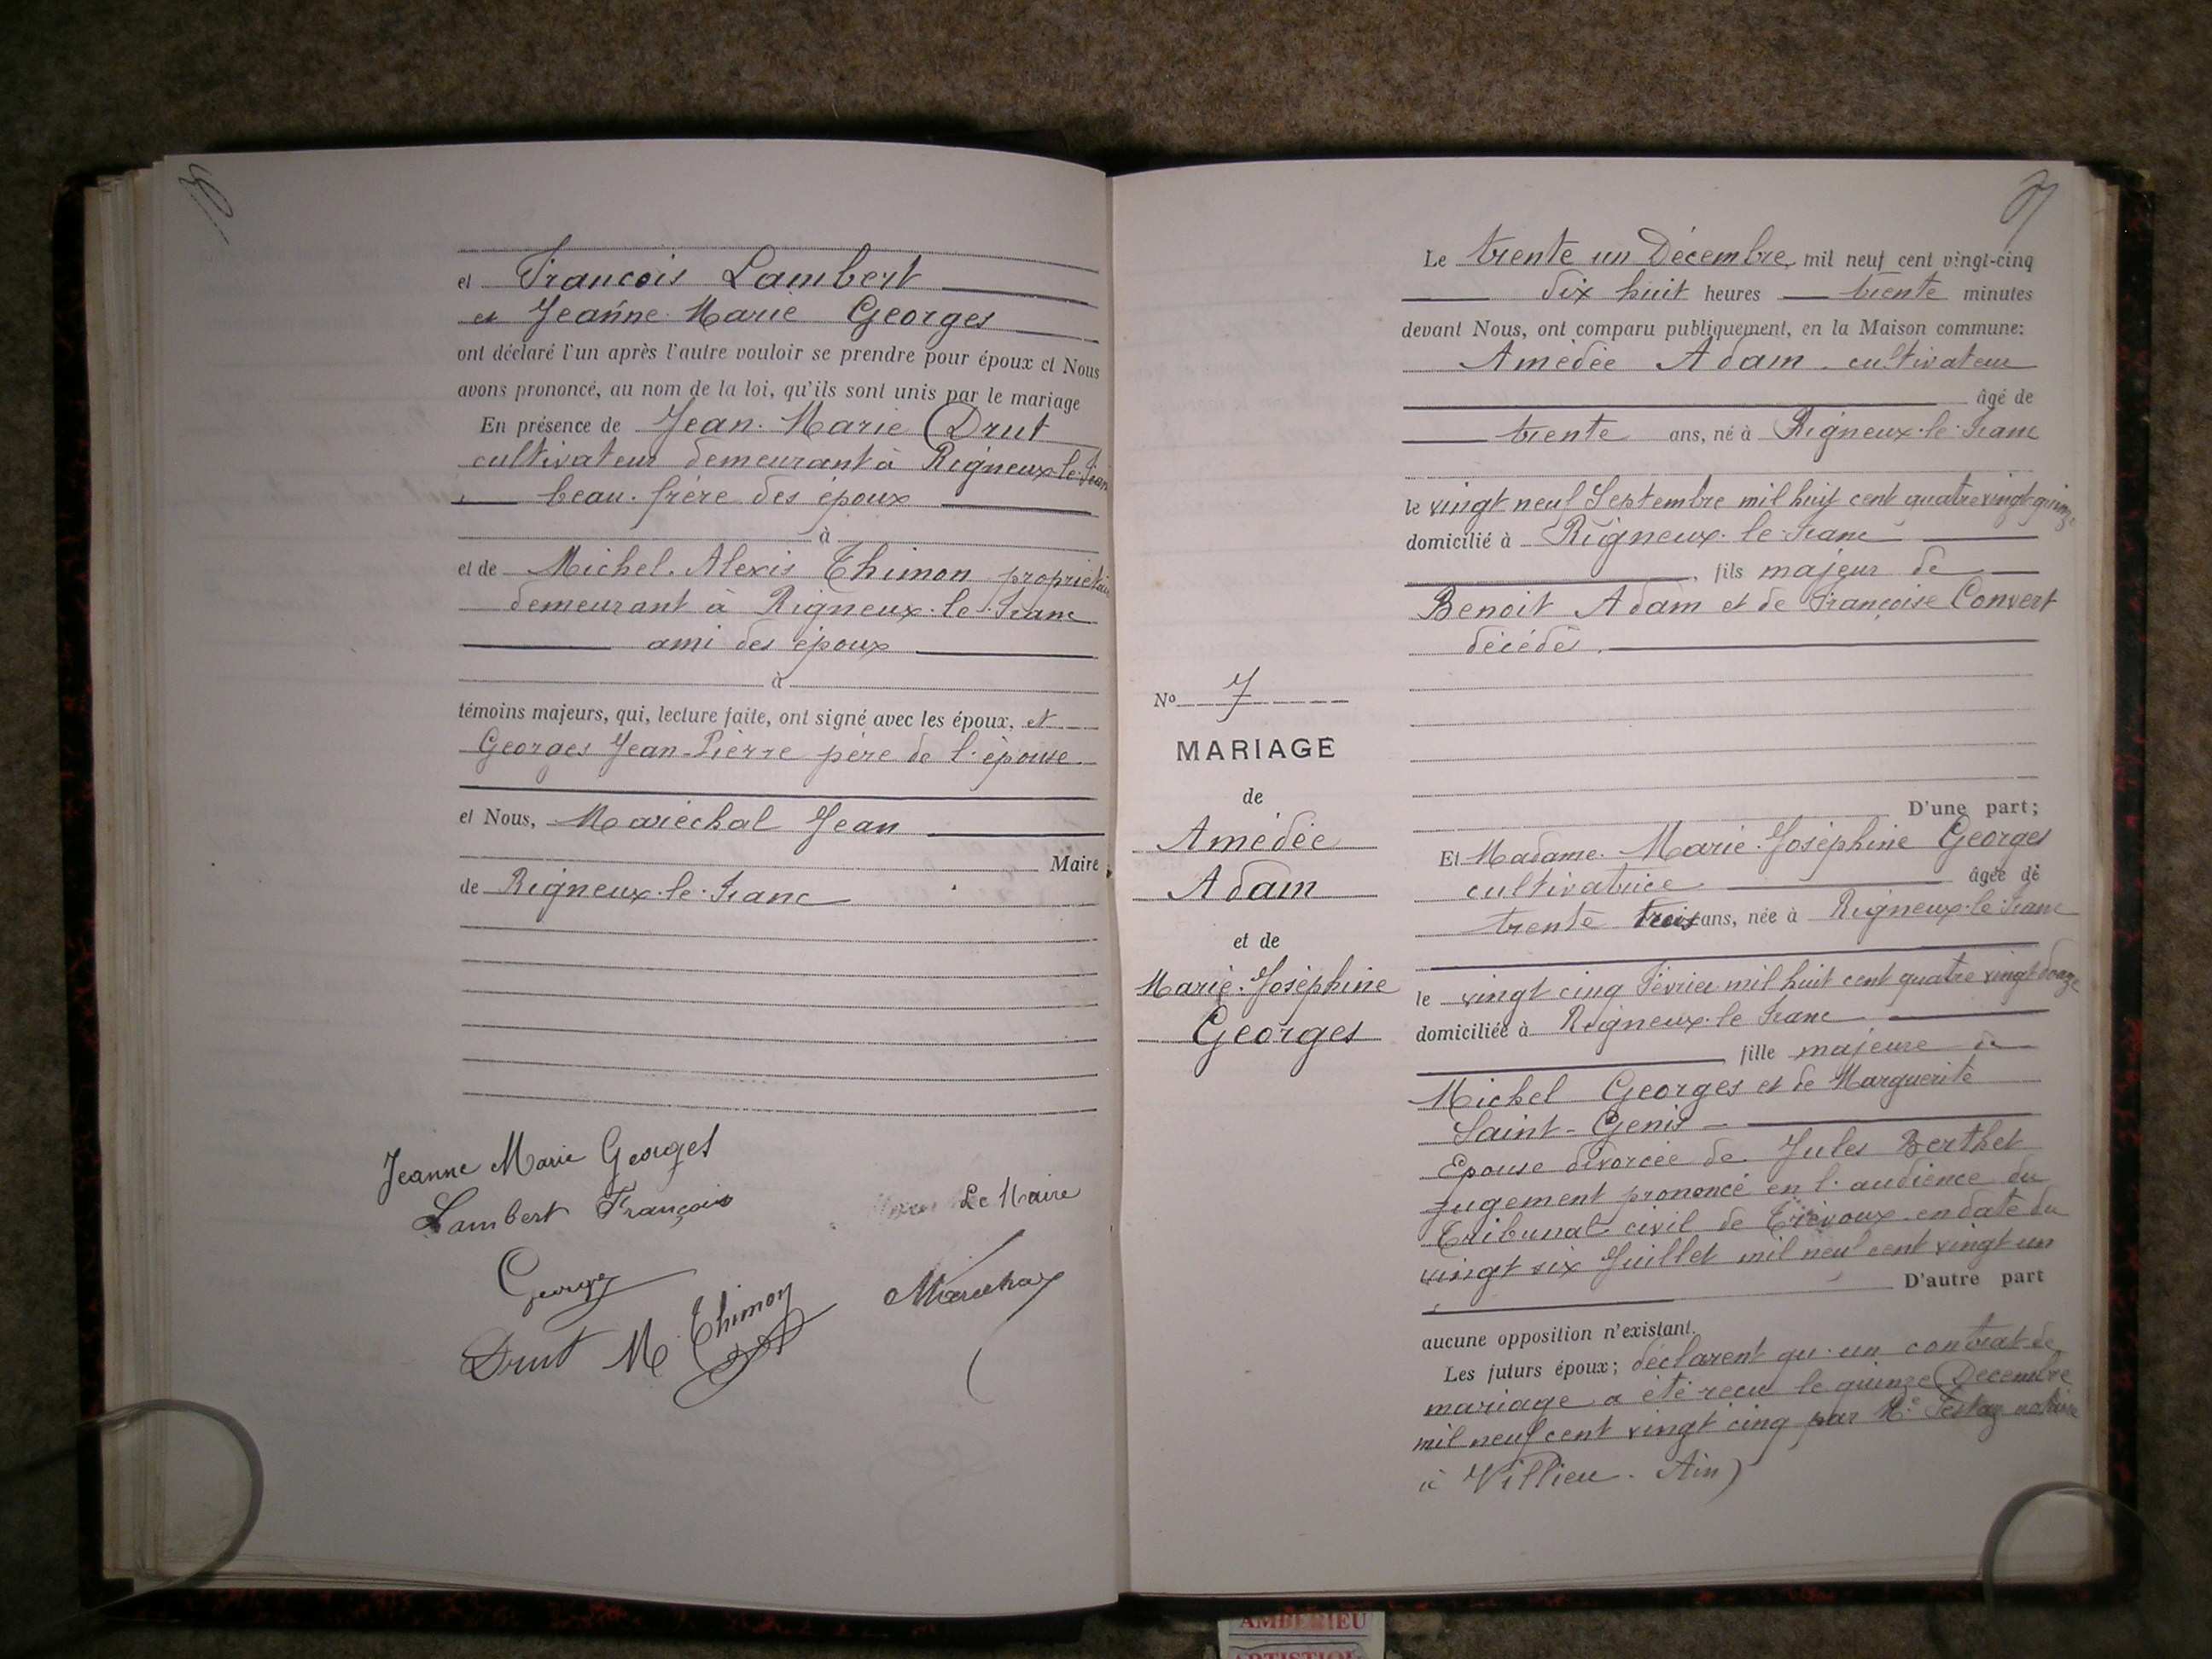 et François Lambert
et Jeanne Marie Georges
ont déclaré l'un après l'autre vouloir se prendre pour époux et Nous
avons prononcé, au nom de la loi, qu'ils sont unis par le mariage
En présence de Jean. Marie Drut
cultivateur demeurant à Rigneux-le-Franc
beau. frère des époux
à
et de Michel. Alexis Thimon propriétaire
demeurant à Rigneux. le. Franc
ami des époux
à
témoins majeurs, qui, lecture faite, ont signé avec les époux, et
Georges Jean-Pierre père de l'épouse
et Nous, Maréchal Jean
Maire
de Rigneux. le. Franc
Jeanne Marie Georges
Lambert François
Le Maire
George
Drut M. Thimon
Maréchal
Le trente un Décembre mil neuf cent vingt-cinq
dix huit heures trente minutes
devant Nous, ont comparu publiquement, en la Maison commune:
Amédée Adam. cultivateur
âgé de
trente ans, né à Rigneux. le. Franc
le vingt neuf Septembre mil huit cent quatre vingt quinze
domicilié à Rigneux. le. Franc
, fils majeur de
Benoit Adam et de Françoise Convert
décédés.
No 7
MARIAGE
de
Amédée
Adam
et de
Marie. Joséphine
Georges
D'une part;
Et Madame. Marie. Joséphine Georges
cultivatrice âgée de
trente trois ans, née à Rigneux. le. Franc
le vingt cinq Février mil huit cent quatre vingt douze
domiciliée à Rigneux. le Franc
, fille majeure de
Michel Georges et de Marguerite
Saint-Genis
Epouse divorcée de Jules Berthet
jugement prononcé en l'audience du
Tribunal civil de Trévoux en date du
vingt six Juillet mil neuf cent vingt un
D'autre part
aucune opposition n'existant.
Les futurs époux; déclarent qu'un contrat de
mariage a été reçu le quinze Décembre
mil neuf cent vingt cinq par Me notaire
à Villieu. Ain)
AMBERIEU